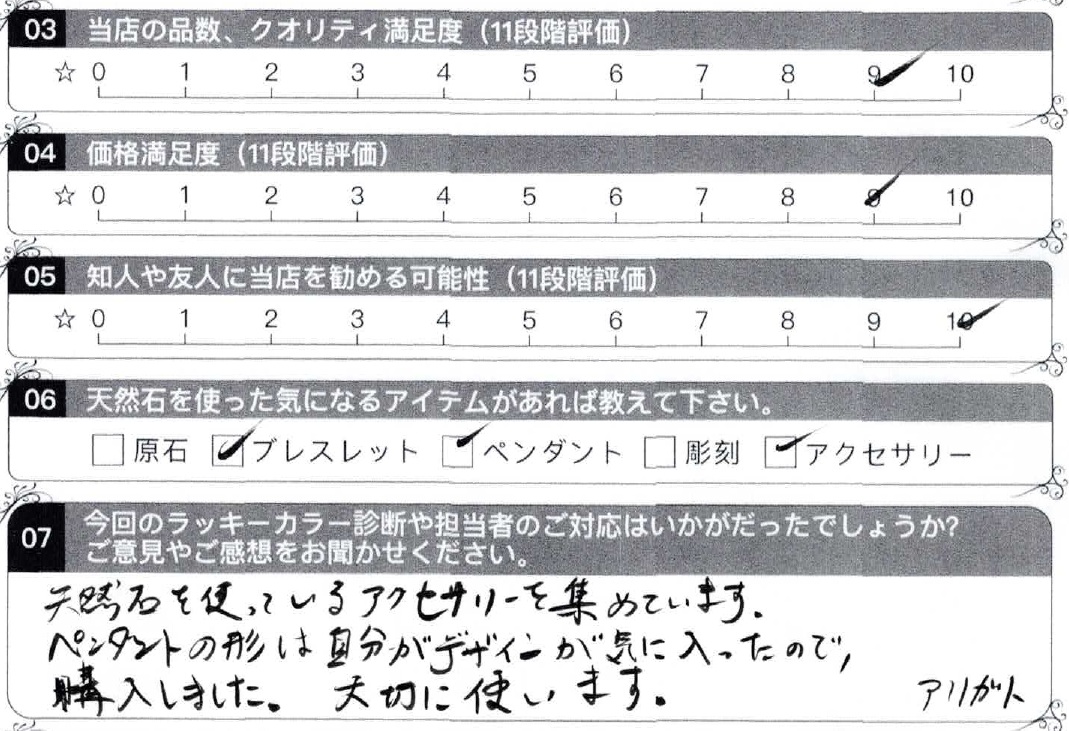 03 当店の品数、クオリティ満足度（11段階評価）
☆ 0 1 2 3 4 5 6 7 8 9 10
04 価格満足度（11段階評価）
☆ 0 1 2 3 4 5 6 7 8 9 10
05 知人や友人に当店を勧める可能性（11段階評価）
☆ 0 1 2 3 4 5 6 7 8 9 10
06 天然石を使った気になるアイテムがあれば教えて下さい。
原石 ブレスレット ペンダント 彫刻 アクセサリー
07 今回のラッキーカラー診断や担当者のご対応はいかがだったでしょうか?
ご意見やご感想をお聞かせください。
天然石を使っているアクセサリーを集めています。
ペンダントの形は自分がデザインが気に入ったので、
購入しました。 大切に使います。 アリガト